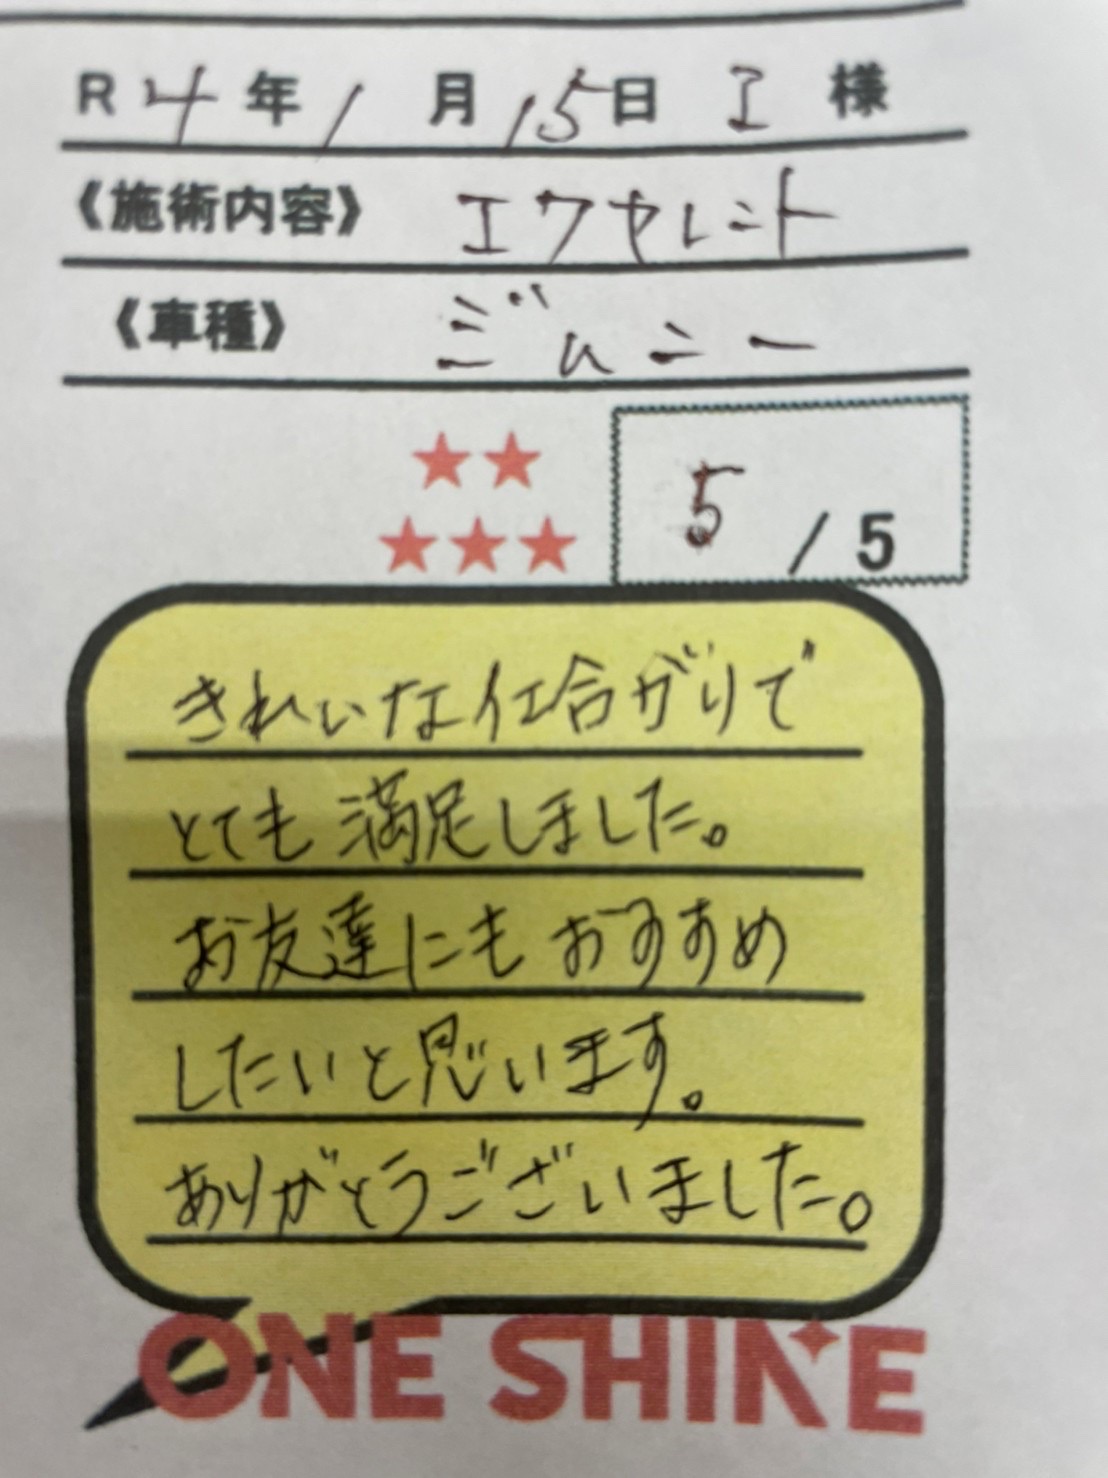 R 4 年 1 月 15 日 I 様
《施術内容》 エクセレント
《車種》 ジムニー
★★
★★★ 5 / 5
きれいな仕合がりで
とても満足しました。
お友達にもおすすめ
したいと思います。
ありがとうございました。
ONE SHINE